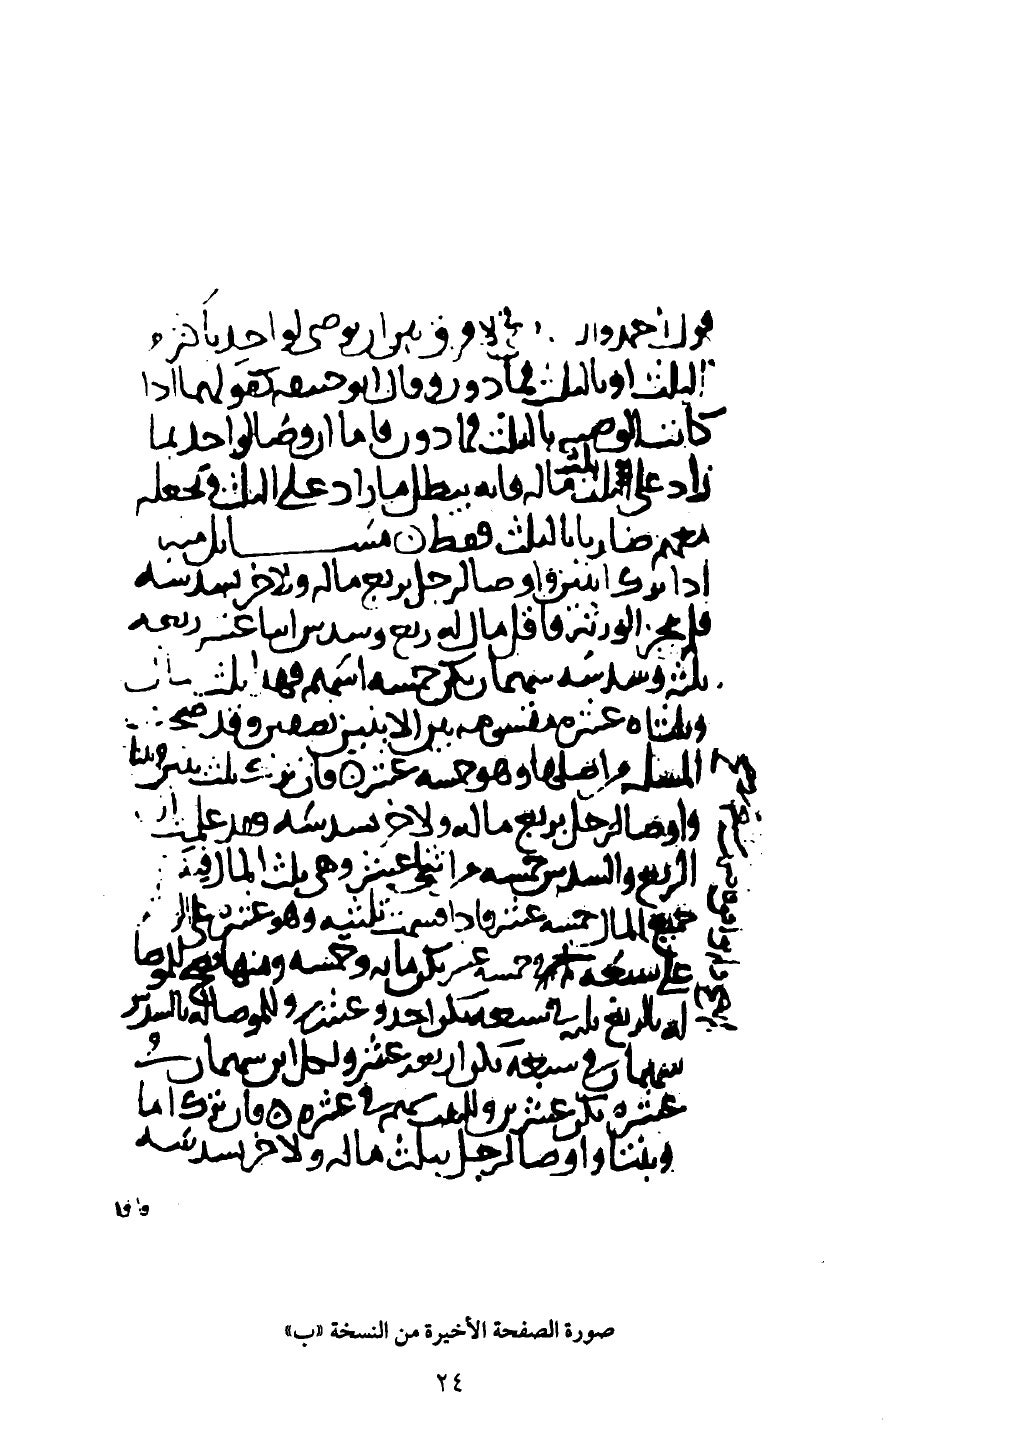 قول احمد وال لا فرق بين ان يوصى لواحد باكثر
الثلث او بالثلث فما دون وقال ابو حنيفه كقولهما اذا
كانت الوصيه بالثلث فما دون فاما ان وصا لواحد بما
زاد على ثلث ماله فانه يبطل ما زاد على الثلث وتجعله
معهم ضاربا بالثلث فقط مسايل منه
اذا ترك ابنين واوصا لرجل بربع ماله ولاخر بسدسه
فلم يجز الورثة فاقل مال له ربع وسدس اثنا عشر ربعه
ثلثه وسدسه سهمان يكن خمسه اسهم فهذا ثلث
وثلثاه عشره مقسومه بين الابنين نصفين وقد صحت
المسله من اصلها وهو خمسه عشر فان ترك ثلث بنين وبنتا
واوصا لرجل بربع ماله ولاخر بسدسه وقد علمت ان
الربع والسدس خمسه من اثني عشر وهي ثلث المال
جميع المال خمسه عشر فاذا قسمت ثلثيه وهو عشره على
على سبعه خمسه عشر يكن مايه وخمسه ومنها تصح للموصا
له بالربع ثلثه في سبعه يكن احد وعشرين وللموصا له بالسدس
سهمان في سبعه يكن اربعه عشر ولكل ابن سهمان في
عشره يكن عشرين وللبنت سهم في عشره فان ترك اما
وبنتا واوصا لرجل بثلث ماله ولاخر بسدسه
صورة الصفحة الأخيرة من النسخة «ب»
٢٤